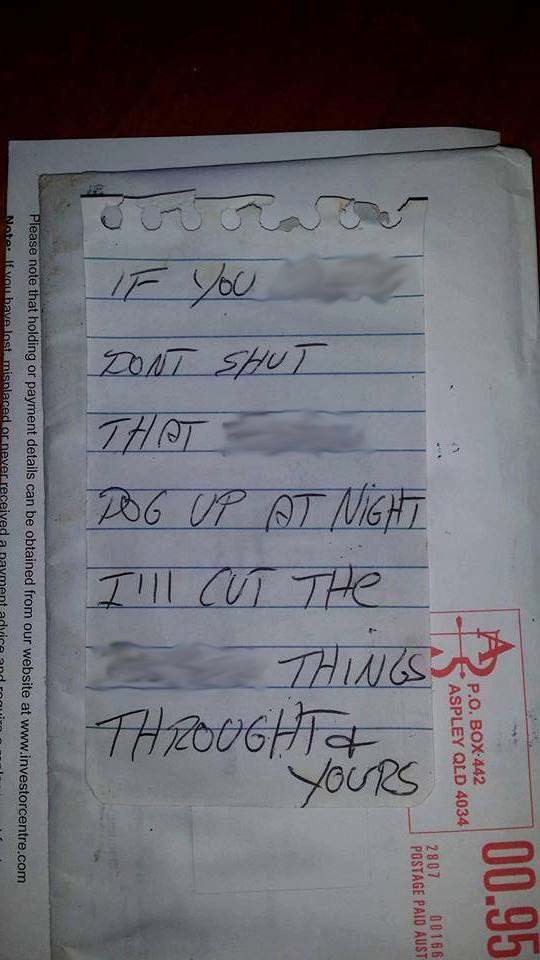 IF YOU
DONT SHUT
THAT
DOG UP AT NIGHT
I'll CUT THe
THINGS
THROUGHT &
YOURS
Please note that holding or payment details can be obtained from our website at www.investorcentre.com
Note: If you have lost, misplaced or never received a payment advice and require a
P.O. BOX 442
ASPLEY QLD 4034
00.95
2807 00166
POSTAGE PAID AUST